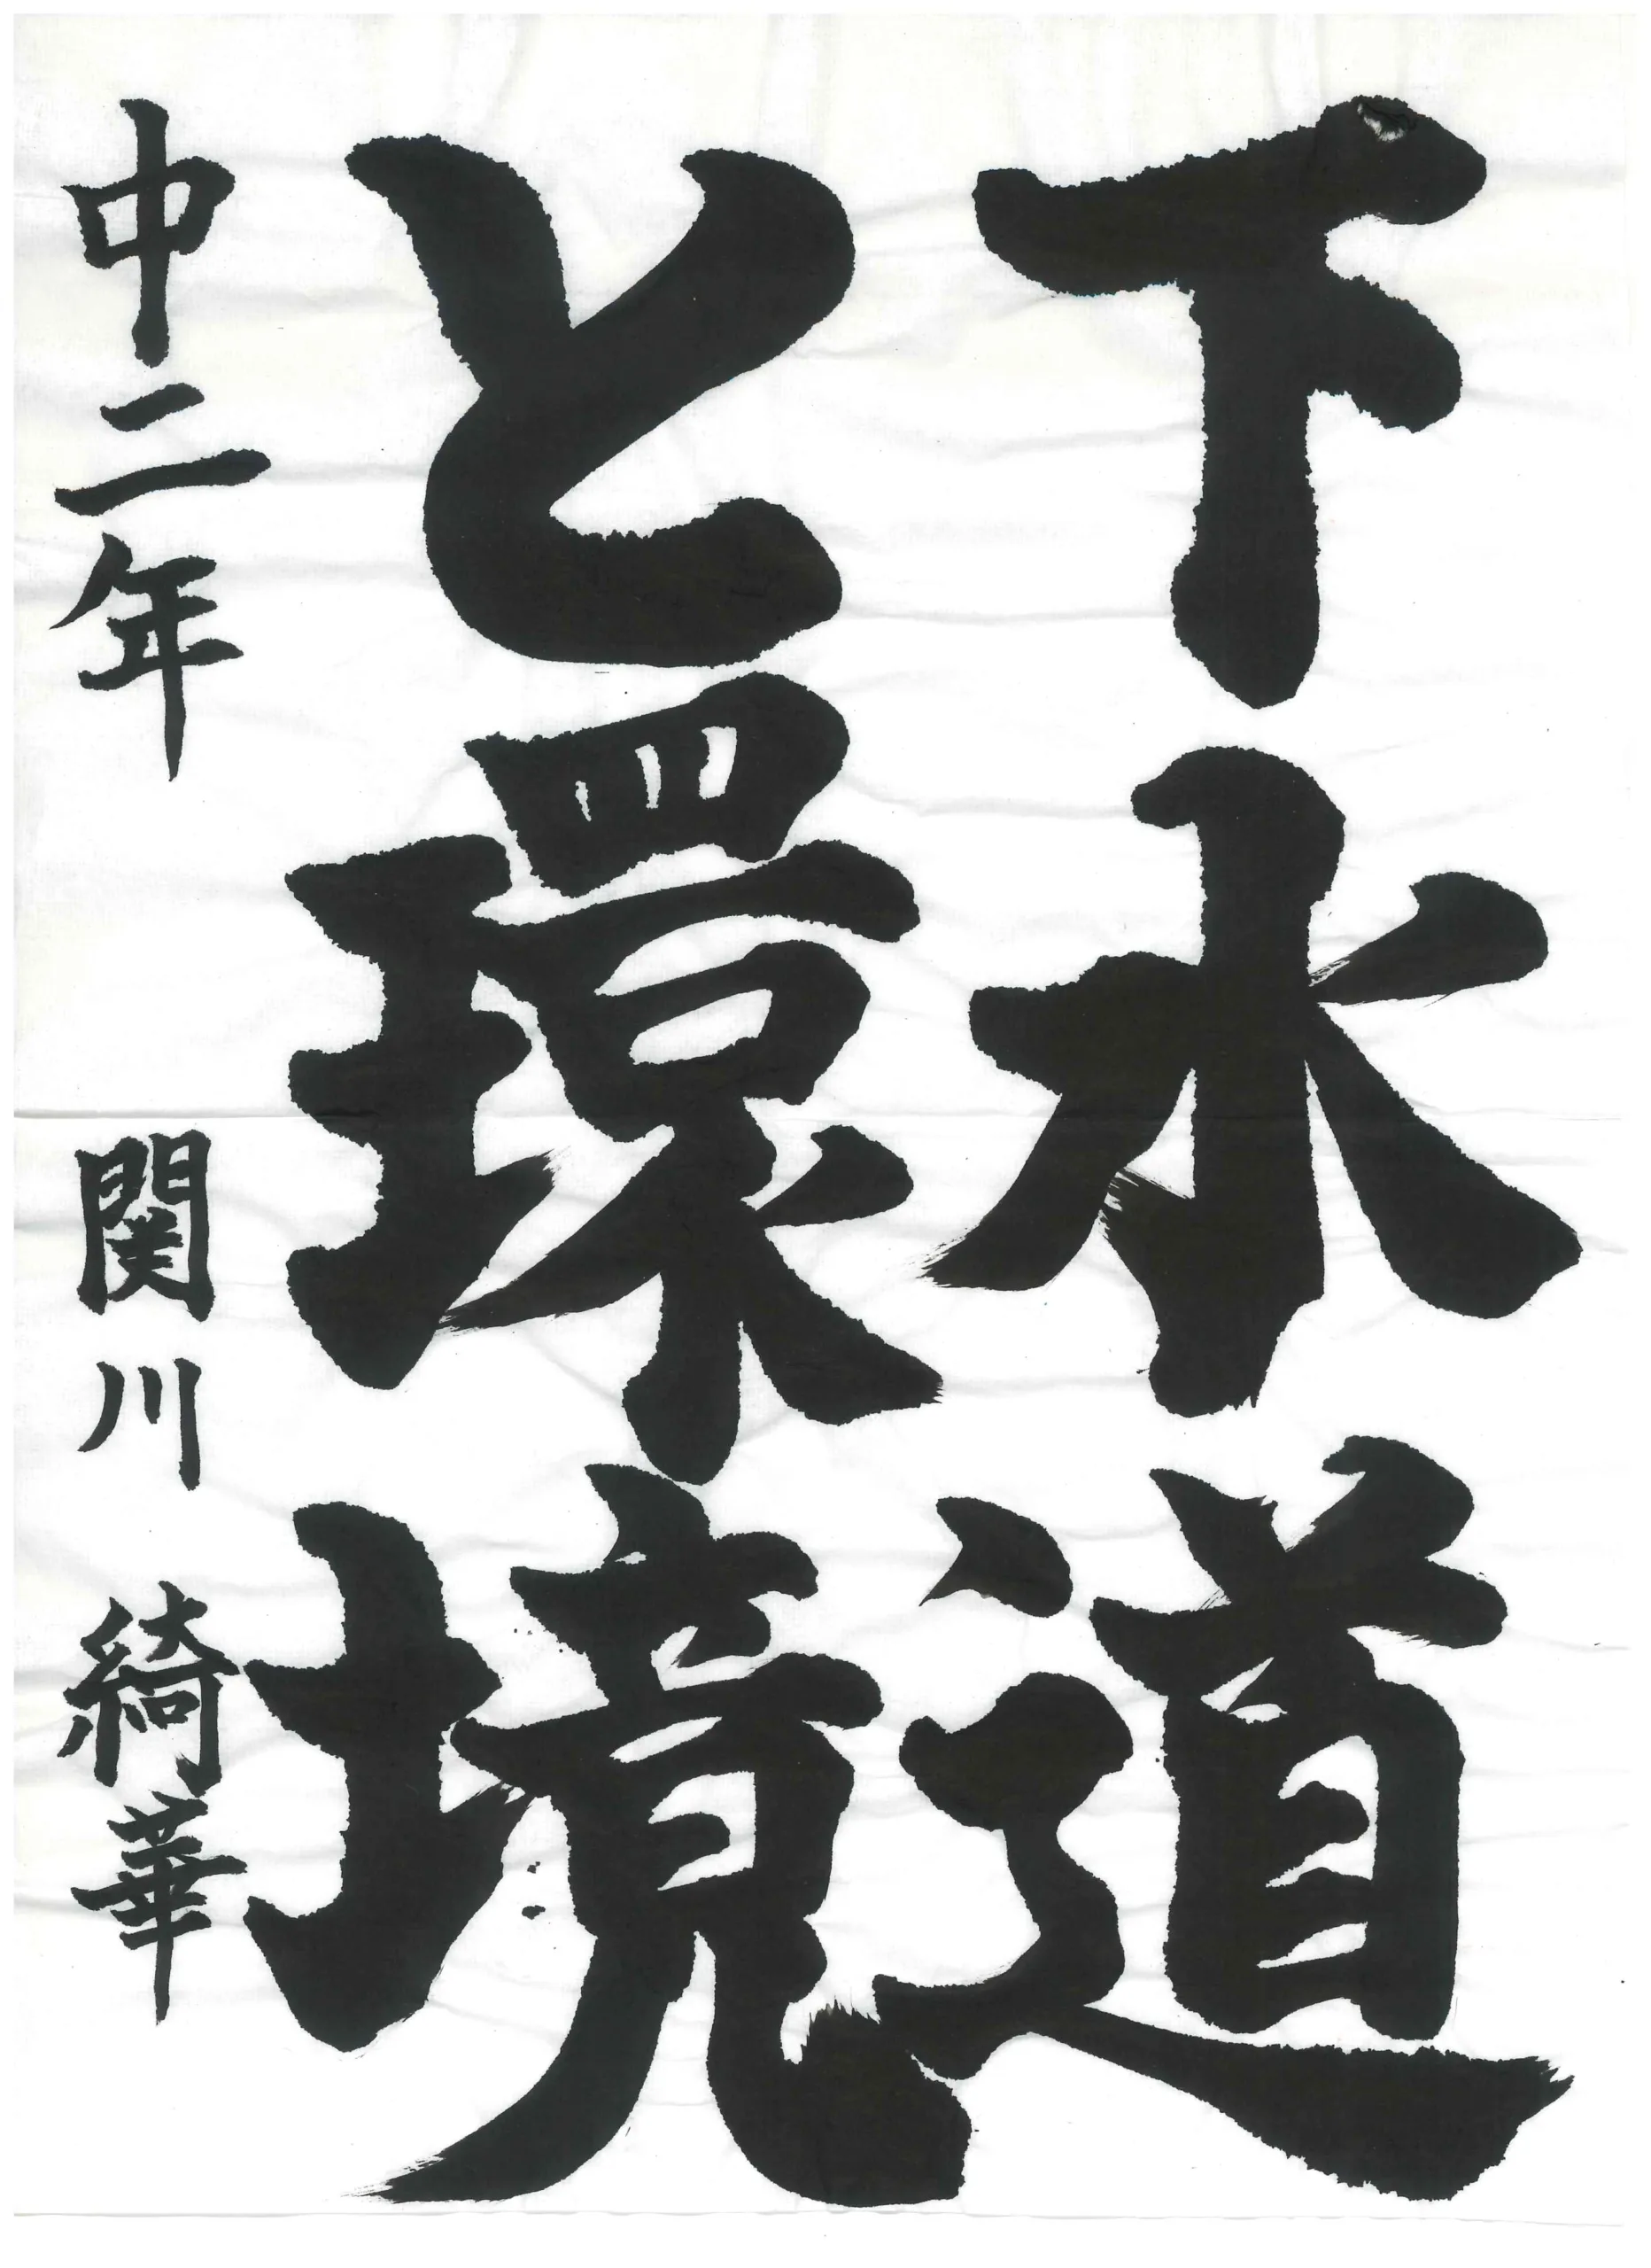 下水道
と環境
中二年 関川 綺華